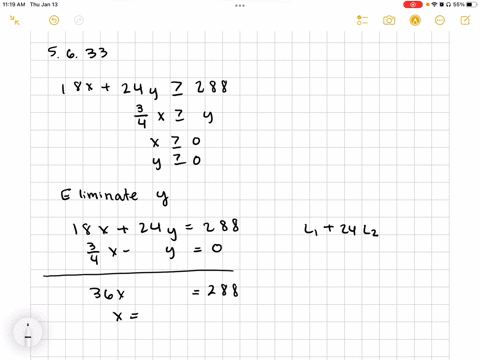 11:19 AM Thu Jan 13
55%
5.6.33
18x + 24y ≥ 288
3/4 x ≥ y
x ≥ 0
y ≥ 0
Eliminate y
18x + 24y = 288
L₁ + 24 L₂
3/4 x - y = 0
36x = 288
x =